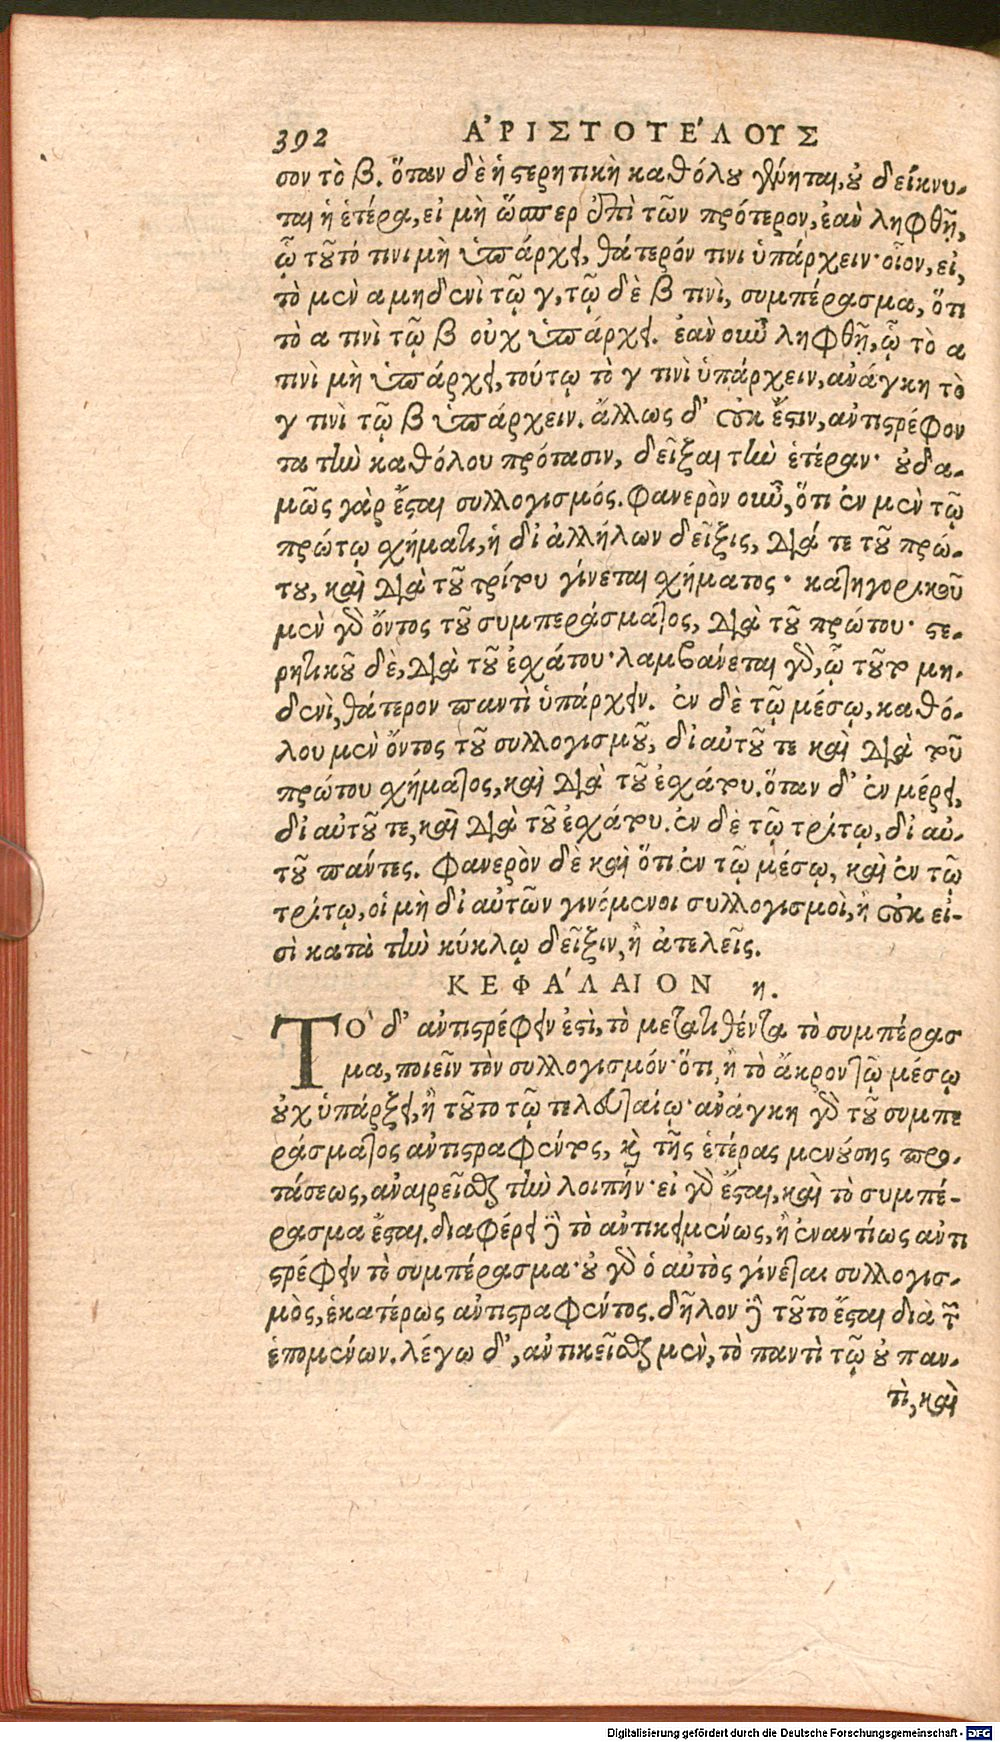 392 ἈΡΙΣΤΟΤΈΛΟΥΣ
σον τὸ β. ὅταν δὲ ἡ στερητικὴ καθόλου γένηται, οὐ δείκνυ-
ται ἡ ἑτέρα, εἰ μὴ ὥσπερ ἐπὶ τῶν πρότερον, ἐὰν ληφθῇ,
ᾧ τοῦτό τινι μὴ ὑπάρχει, θάτερόν τινι ὑπάρχειν· οἷον, εἰ,
τὸ μὲν α μηδενὶ τῷ γ, τῷ δὲ β τινὶ, συμπέρασμα, ὅτι
τὸ α τινὶ τῷ β οὐχ ὑπάρχει. ἐὰν οὖν ληφθῇ, ᾧ τὸ α
τινὶ μὴ ὑπάρχει, τούτῳ τὸ γ τινὶ ὑπάρχειν, ἀνάγκη τὸ
γ τινὶ τῷ β ὑπάρχειν. ἄλλως δ' οὐκ ἔστιν, ἀντιστρέφον
τα τὴν καθόλου πρότασιν, δεῖξαι τὴν ἑτέραν· οὐδα-
μῶς γὰρ ἔσται συλλογισμός. Φανερὸν οὖν, ὅτι ἐν μὲν τῷ
πρώτῳ σχήματι, ἡ δι' ἀλλήλων δεῖξις, διά τε τοῦ πρώ-
του, καὶ διὰ τοῦ τρίτου γίνεται σχήματος· κατηγορικοῦ
μὲν γὰρ ὄντος τοῦ συμπεράσματος, διὰ τοῦ πρώτου· στε-
ρητικοῦ δὲ, διὰ τοῦ ἐσχάτου· λαμβάνεται γὰρ, ᾧ τοῦτο μη-
δενὶ, θάτερον παντὶ ὑπάρχειν. ἐν δὲ τῷ μέσῳ, καθό-
λου μὲν ὄντος τοῦ συλλογισμοῦ, δι' αὐτοῦ τε καὶ διὰ τοῦ
πρώτου σχήματος, καὶ διὰ τοῦ ἐσχάτου. ὅταν δ' ἐν μέρει,
δι' αὐτοῦ τε, καὶ διὰ τοῦ ἐσχάτου. ἐν δὲ τῷ τρίτῳ, δι' αὐ-
τοῦ πάντες. Φανερὸν δὲ καὶ ὅτι ἐν τῷ μέσῳ, καὶ ἐν τῷ
τρίτῳ, οἱ μὴ δι' αὐτῶν γινόμενοι συλλογισμοὶ, ἢ οὐκ εἰ-
σὶ κατὰ τὴν κύκλῳ δεῖξιν, ἢ ἀτελεῖς.
ΚΕΦΆΛΑΙΟΝ η.
ΤῸ δ' ἀντιστρέφειν ἐστὶ, τὸ μετατιθέντα τὸ συμπέρασ
μα, ποιεῖν τὸν συλλογισμόν· ὅτι, ἢ τὸ ἄκρον τῷ μέσῳ
οὐχ ὑπάρξει, ἢ τοῦτο τῷ τελευταίῳ· ἀνάγκη γὰρ τοῦ συμπε
ράσματος ἀντιστραφέντος, καὶ τῆς ἑτέρας μενούσης προ-
τάσεως, ἀναιρεῖσθαι τὴν λοιπήν· εἰ γὰρ ἔσται, καὶ τὸ συμπέ-
ρασμα ἔσται. διαφέρει δὲ τὸ ἀντικειμένως, ἢ ἐναντίως ἀντι
στρέφειν τὸ συμπέρασμα· οὐ γὰρ ὁ αὐτὸς γίνεται συλλογισ-
μὸς, ἑκατέρως ἀντιστραφέντος. δῆλον δὲ τοῦτο ἔσται διὰ τῶν
ἑπομένων. λέγω δ', ἀντικεῖσθαι μὲν, τὸ παντὶ τῷ οὐ παν-
τὶ, καὶ
Digitalisierung gefördert durch die Deutsche Forschungsgemeinschaft - DFG